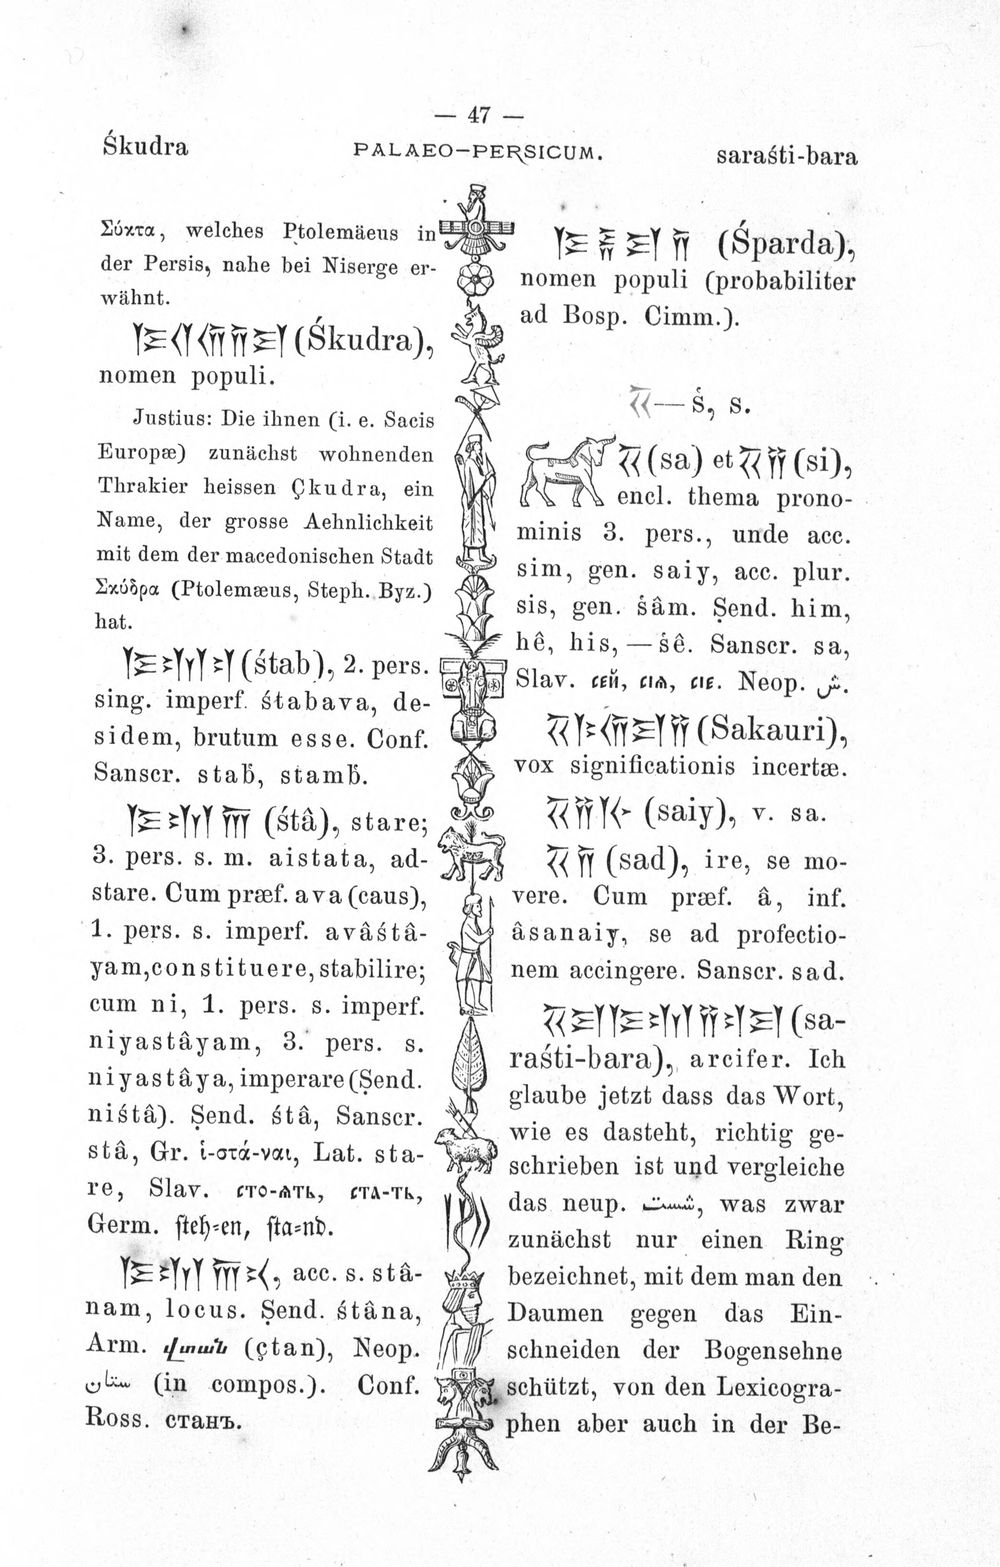 — 47 —
Śkudra
PALAEO-PERSICUM.
saraśti-bara
Σύκτα, welches Ptolemäeus in
der Persis, nahe bei Niserge er-
wähnt.
(Śkudra),
nomen populi.
Justius: Die ihnen (i. e. Sacis
Europæ) zunächst wohnenden
Thrakier heissen Çkudra, ein
Name, der grosse Aehnlichkeit
mit dem der macedonischen Stadt
Σκύδρα (Ptolemæus, Steph. Byz.)
hat.
(śtab), 2. pers.
sing. imperf. śtabava, de-
sidem, brutum esse. Conf.
Sanscr. stab, stamb.
(śtâ), stare;
3. pers. s. m. aistata, ad-
stare. Cum præf. ava (caus),
1. pers. s. imperf. avâśtâ-
yam, constituere, stabilire;
cum ni, 1. pers. s. imperf.
niyastâyam, 3. pers. s.
niyastâya, imperare (Şend.
niśtâ). Şend. śtâ, Sanscr.
stâ, Gr. ἱ-στά-ναι, Lat. sta-
re, Slav. сто-ѩть, ста-ть,
Germ. steh-en, sta-nd.
, acc. s. stâ-
nam, locus. Şend. śtâna,
Arm. (çtan), Neop.
ستان (in compos.). Conf.
Ross. станъ.
(Śparda),
nomen populi (probabiliter
ad Bosp. Cimm.).
— ṡ, s.
(sa) et (si),
encl. thema prono-
minis 3. pers., unde acc.
sim, gen. saiy, acc. plur.
sis, gen. ṡâm. Şend. him,
hê, his, — ṡê. Sanscr. sa,
Slav. сей, сіѩ, сіе. Neop. ش.
(Sakauri),
vox significationis incertæ.
(saiy), v. sa.
(sad), ire, se mo-
vere. Cum præf. â, inf.
âsanaiy, se ad profectio-
nem accingere. Sanscr. sad.
(sa-
raśti-bara), arcifer. Ich
glaube jetzt dass das Wort,
wie es dasteht, richtig ge-
schrieben ist und vergleiche
das neup. شست, was zwar
zunächst nur einen Ring
bezeichnet, mit dem man den
Daumen gegen das Ein-
schneiden der Bogensehne
schützt, von den Lexicogra-
phen aber auch in der Be-